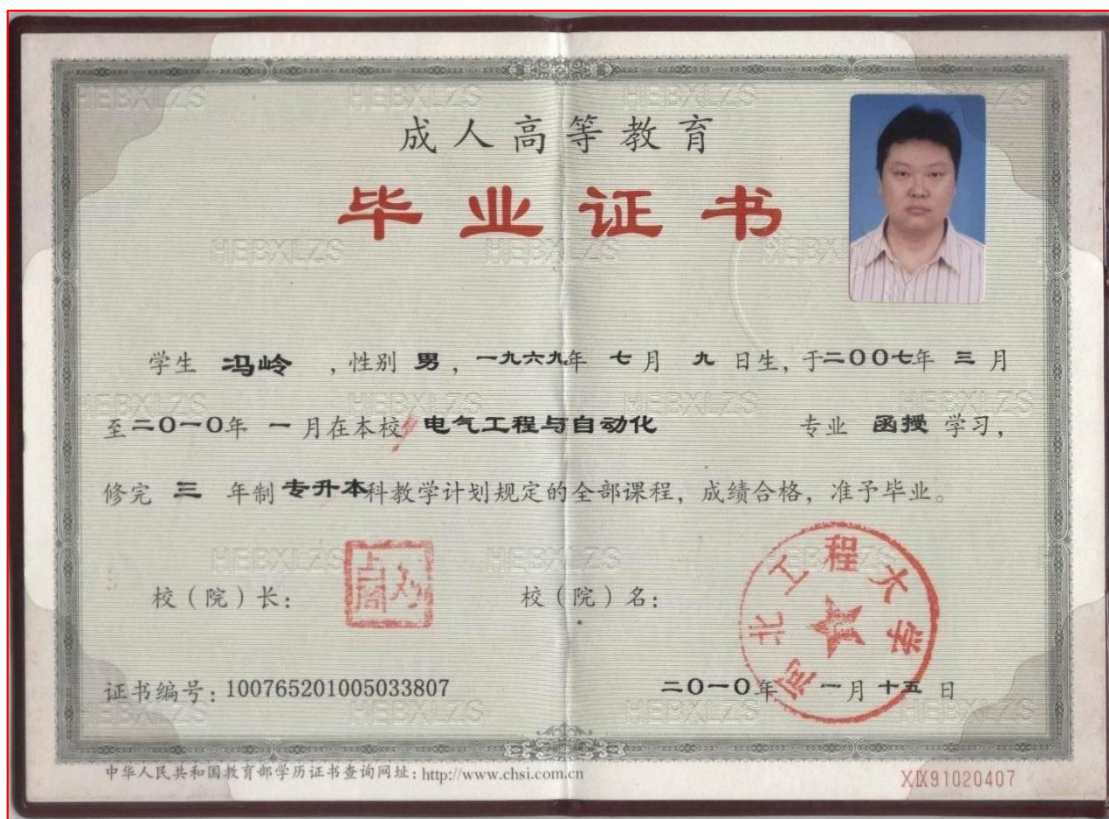 成人高等教育
毕业证书
学生 冯岭 ，性别 男 ，一九六九年 七月 九 日生，于二〇〇七年 三 月
至二〇一〇年 一 月在本校 电气工程与自动化 专业 函授 学习，
修完 三 年制 专升本科教学计划规定的全部课程，成绩合格，准予毕业。
校（院）长：
校（院）名：
河北工程大学
证书编号：100765201005033807
二〇一〇年 一月 十五 日
中华人民共和国教育部学历证书查询网址：http://www.chsi.com.cn
XIX91020407
HEBXLZS